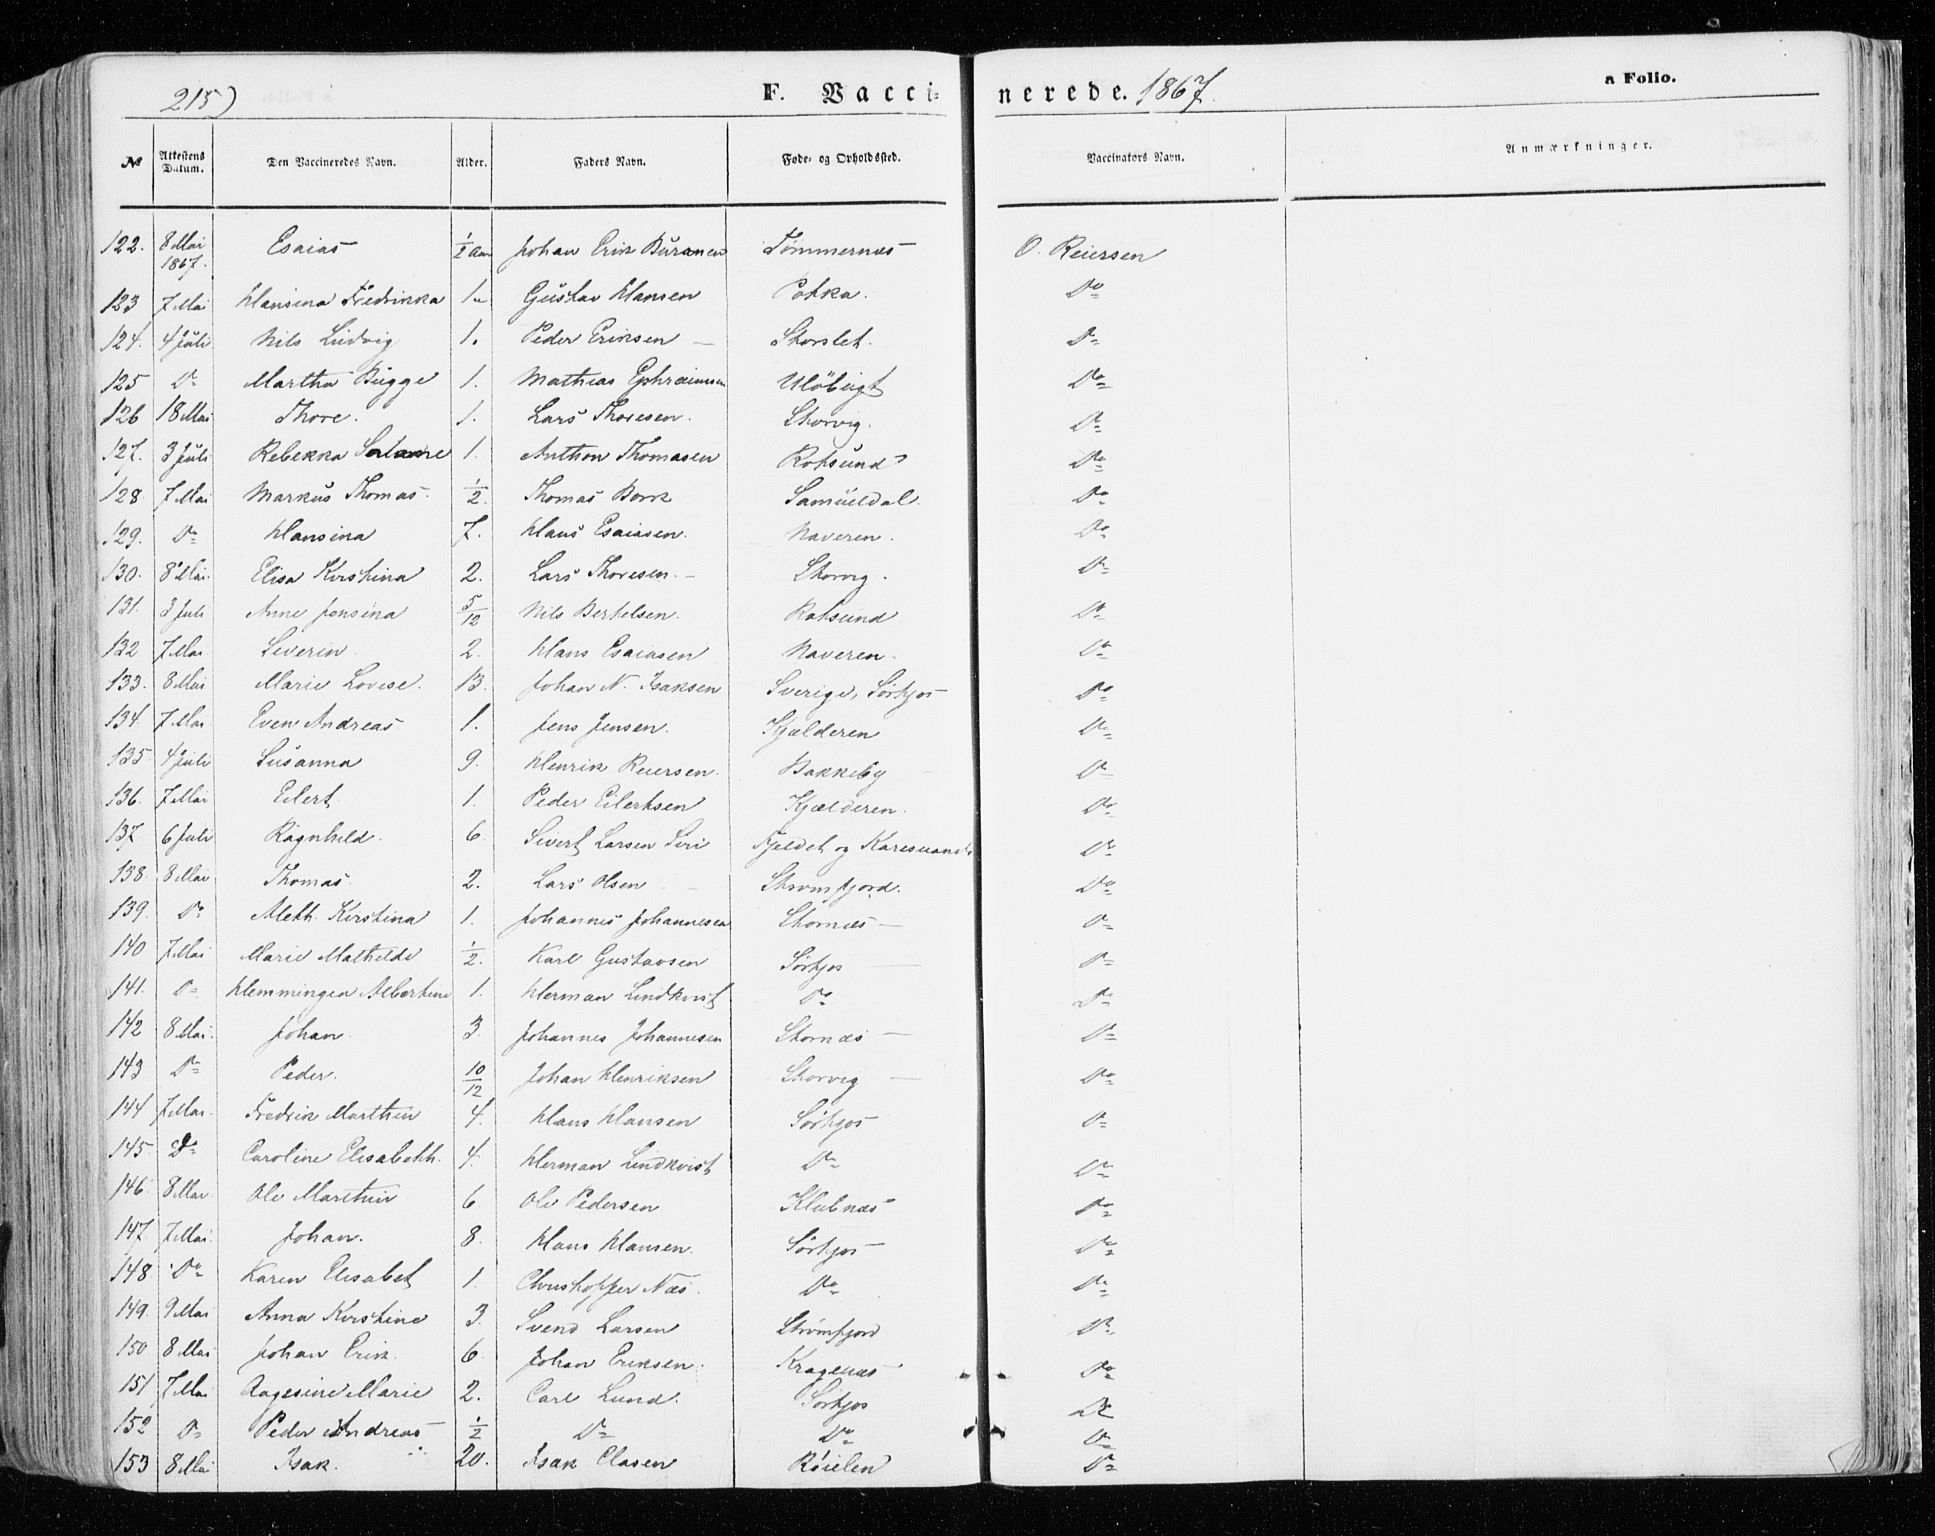 215)
F. Vacci- nerede. 1867.
a Folio.
№ Attestens Datum. Den Vaccineredes Navn. Alder. Faders Navn. Føde- og Opholdssted. Vaccinators Navn. Anmærkninger.
122. 8 Mai 1867. Esaias ½ Aar Johan Erik Buranen Tømmernæs O. Reiersen
123 7 Mai Hansina Fredrikka 1 " Gustav Hansen Potka. Do
124. 4 Juli Nils Ludvig 1. Peder Eriksen Storslet. Do
125 Do Martha Bugge 1. Mathias Ephraimsen Uløbugt Do
126 18 Mai Thore. 1. Lars Thoresen. Storvig. Do
127. 3 Juli Rebekka 1. Anthon Thomasen Rotsund Do
128 7 Mai Markus Thomas. ½ Thomas Bork Samueldal. Do
129. Do Hansina 7. Hans Esaiasen. Haveren. Do
130. 8 Mai. Elisa Kirstina 2. Lars Thoresen. Storvig. Do
131. 3 Juli Anne Jonsina 5/12 Nils Bertelsen. Rotsund Do
132 7 Mai. Severin. 2. Hans Esaiasen Haveren. Do
133. 8 Mai Marie Lovise. 13. Johan N. Isaksen Sverige, Sørkjos Do
134. 7 Mai Even Andreas 1. Jens Jensen. Kjælderen Do
135 4 Juli Susanna 9. Henrik Reiersen. Bakkeby Do
136. 7 Mai Eilert 1. Peder Eilertsen Kjælderen. Do
137 6 Juli Ragnhild. 6. Sivert Larsen Siri Fjeldet og Karesuando Do
138. 8 Mai Thomas. 2. Lars Olsen Strømfjord. Do
139. Do Aleth. Kirstina 1. Johannes Johannesen Stornæs Do
140 7 Mai Marie Mathilde ½. Karl Gustavsen Sørkjos Do
141. Do Hemmingea Albertine 1. Herman Lindkvist Do Do
142 8 Mai. Johan. 3. Johannes Johannesen Stornæs Do
143 Do Peder. 10/12 Johan Henriksen Storvig Do
144 7 Mai. Fredrik Marthin 4. Hans Hansen Sørkjos Do
145 Do Caroline Elisabeth. 4. Herman Lindkvist Do Do
146. 8 Mai Ole Marthin 6 Ole Pedersen Klubnæs Do
147 7 Mai. Johan. 8. Hans Hansen. Sørkjos Do
148 Do Karen Elisabet 1. Christopher Næs. Do Do
149. 9 Mai Anna Kirstine 3. Svend Larsen Strømfjord Do
150 8 Mai Johan Erik. 6. Johan Eriksen. Kragenæs Do
151 7 Mai Aagesine Marie 2. Carl Lund. Sørkjos Do
152 Do Peder Andreas ½ Do Do Do
153 8 Mai Isak. 20. Isak Clasen Røielen Do